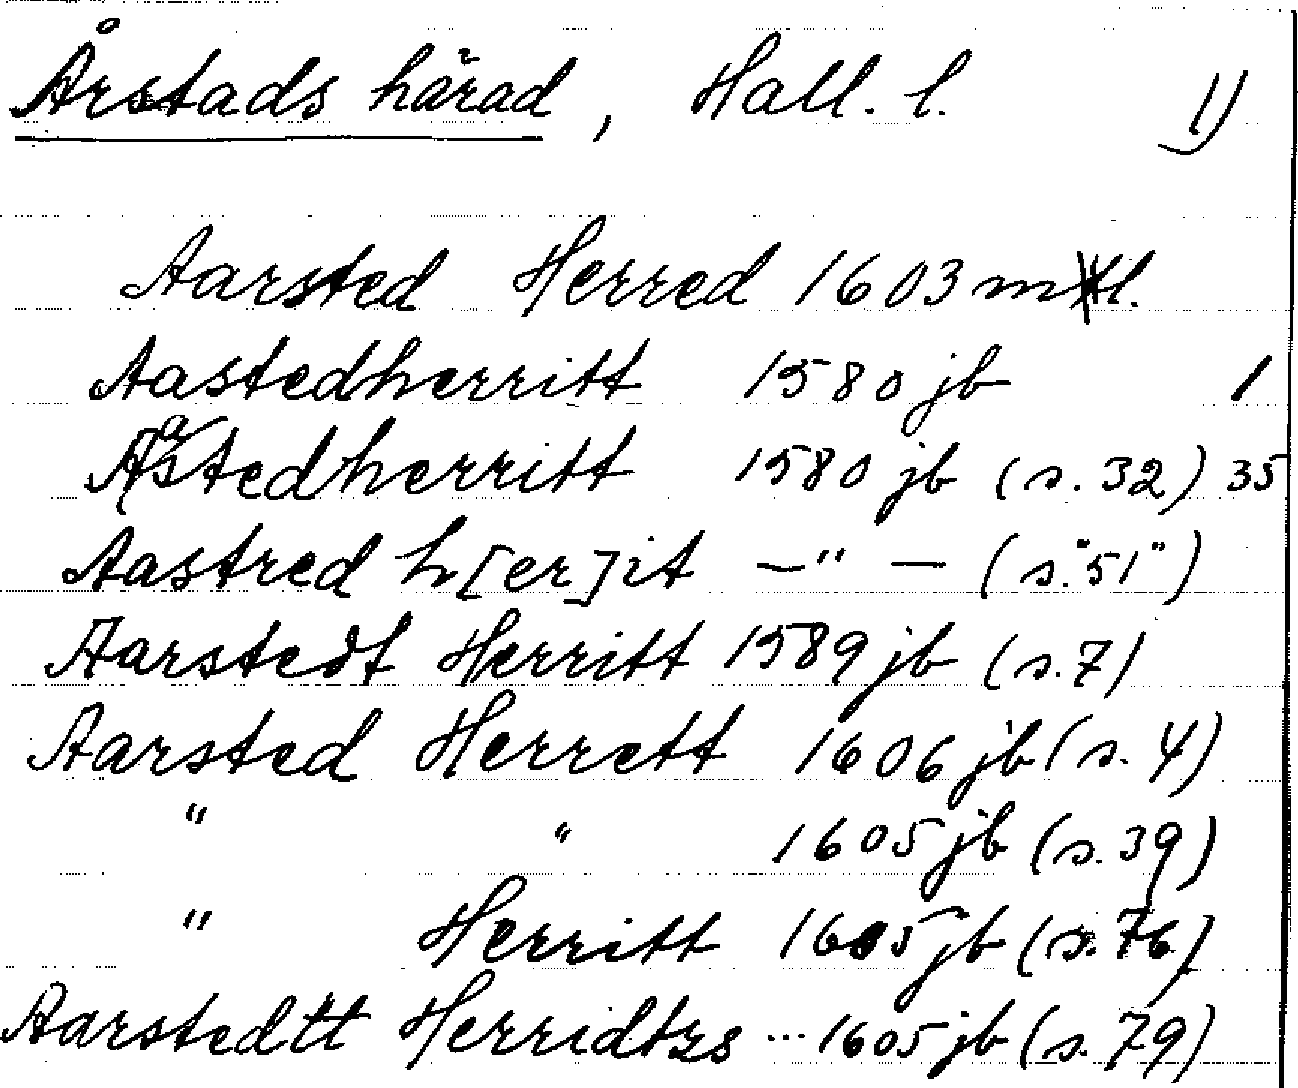 Årstads härad, Hall. l. 1)
Aarsted Herred 1603 mtl.
Aastedherritt 1580 jb 1
Aastedherritt 1580 jb (s. 32) 35
Aastred h[er]it —"— (s. "51")
Aarstedt Herritt 1589 jb (s. 7)
Aarsted Herrett 1606 jb (s. 4)
" " 1605 jb (s. 39)
" Herritt 1605 jb (s. 76)
Aarstedtt Herridtzs ... 1605 jb (s. 79)